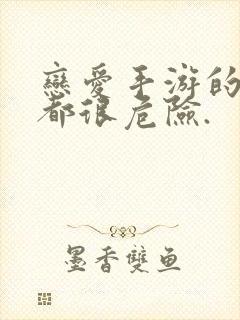 戀愛手游的
都很危險.
墨香雙魚